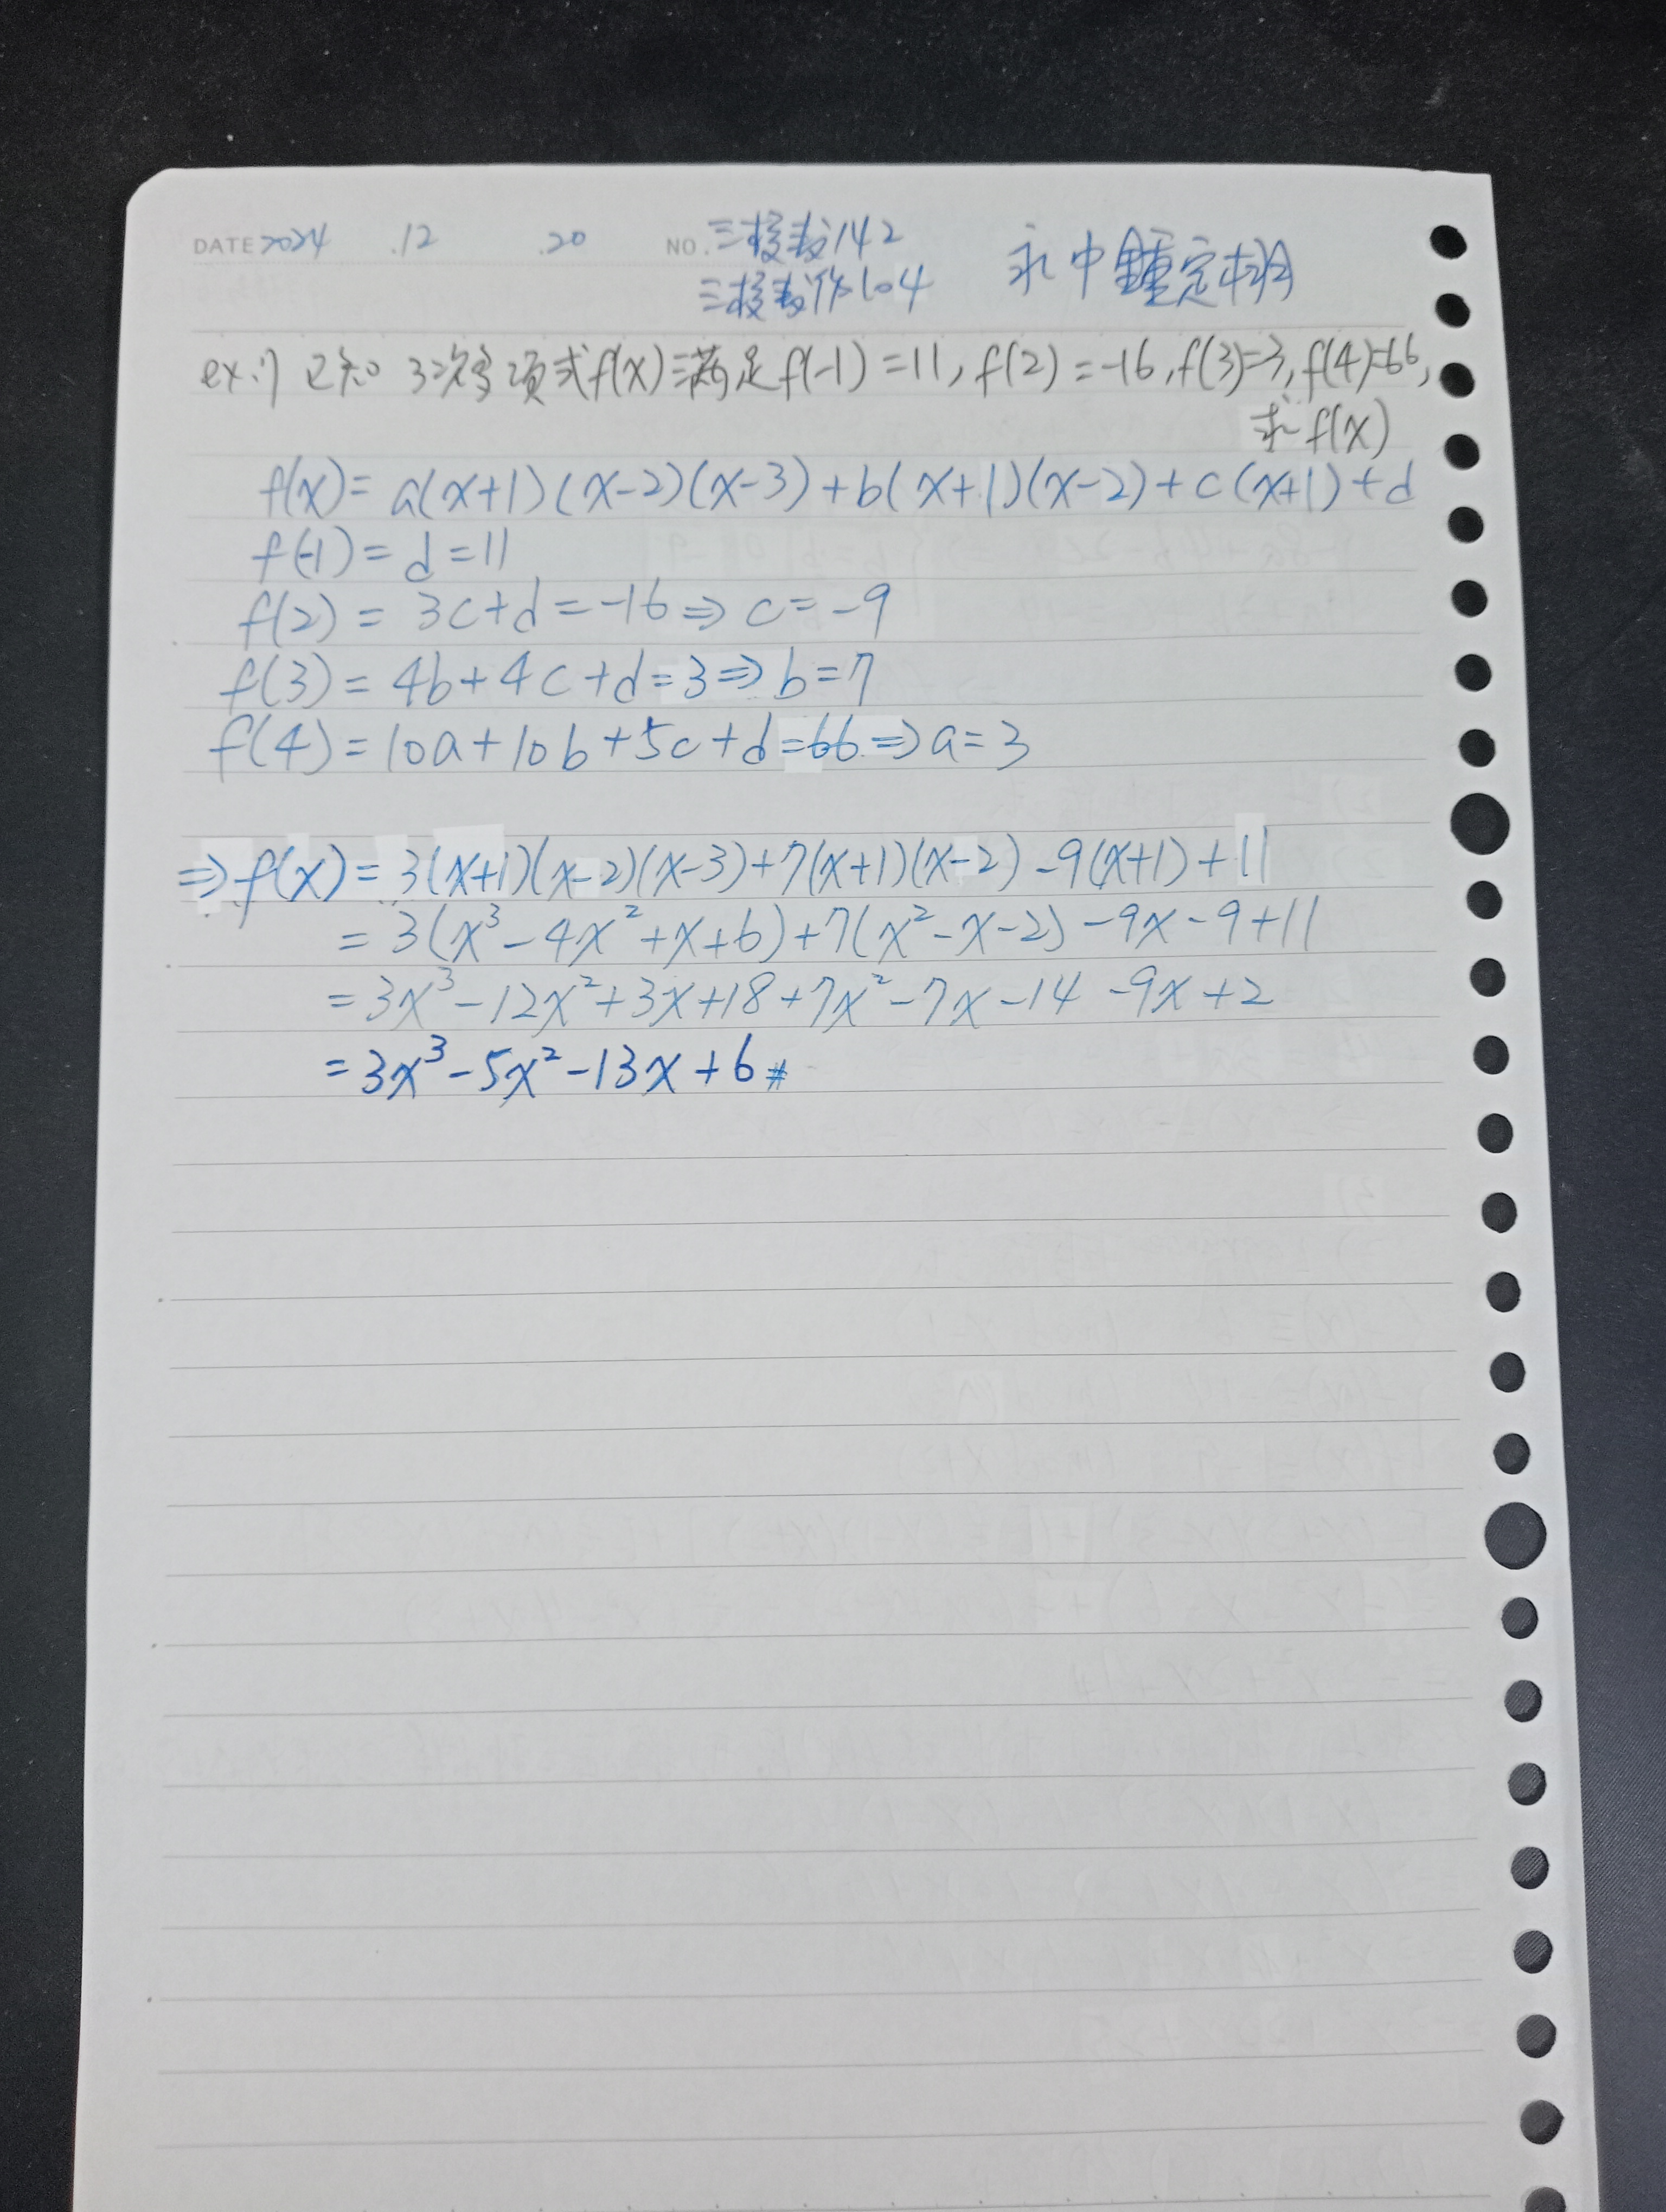 DATE 2024 .12 .20 NO. 三接教142
三接教125104
永中鍾定栩
ex:7 已知 3次多項式f(x)滿足f(-1)=11, f(2)=-16, f(3)=3, f(4)=66,
求f(x)
f(x)= a(x+1)(x-2)(x-3)+b(x+1)(x-2)+c(x+1)+d
f(-1)= d=11
f(2)= 3c+d=-16⇒c=-9
f(3)= 4b+4c+d=3⇒b=7
f(4)=10a+10b+5c+d=66⇒a=3
⇒f(x)= 3(x+1)(x-2)(x-3)+7(x+1)(x-2)-9(x+1)+11
= 3(x³-4x²+x+6)+7(x²-x-2)-9x-9+11
= 3x³-12x²+3x+18+7x²-7x-14-9x+2
= 3x³-5x²-13x+6#